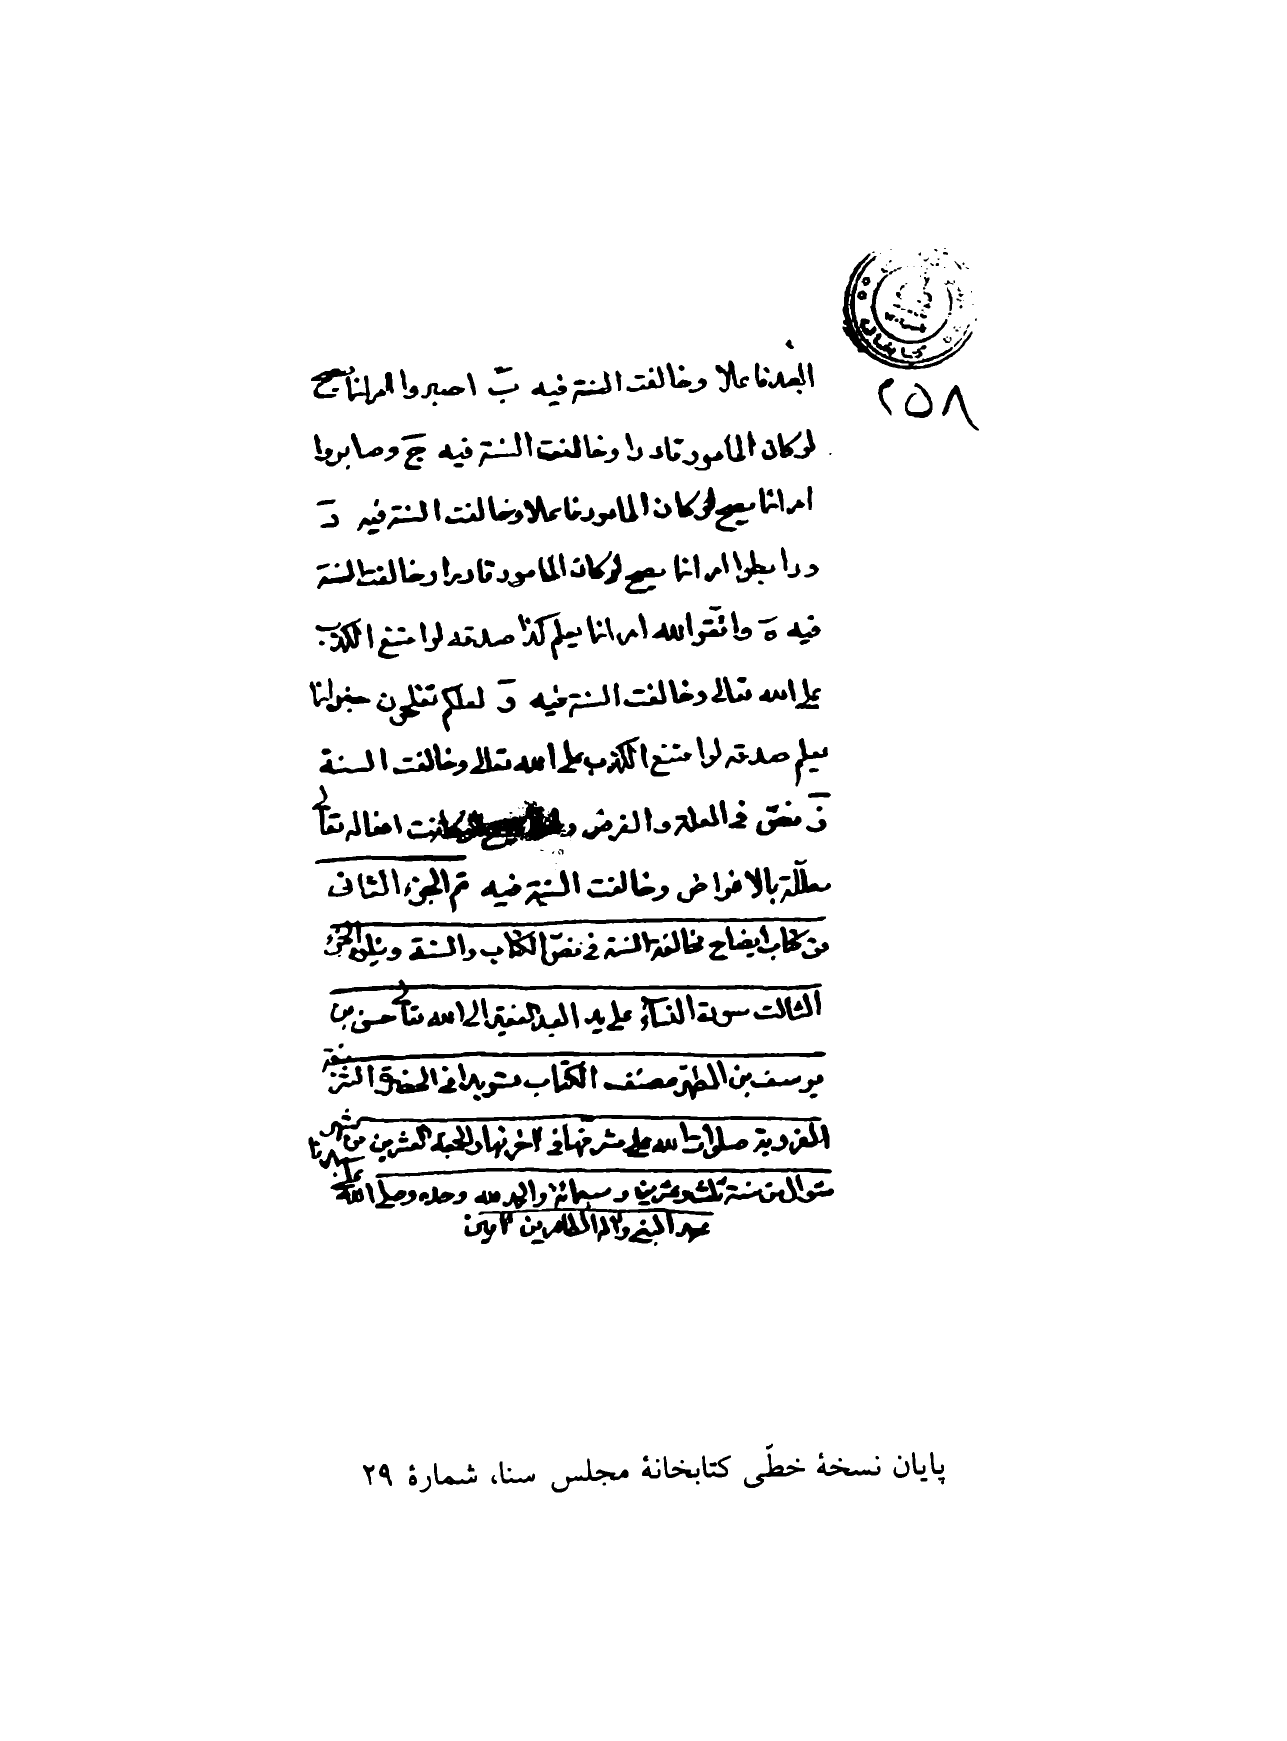 ٢٥٨
العبد فاعلا وخالفت السنة فيه بَ اصبروا امر انما يصح
لو كان المامور قادرا وخالفت السنة فيه جَ وصابروا
امر انما يصح لو كان المامور فاعلا وخالفت السنة فيه دَ
ورابطوا امر انما يصح لو كان المامور قادرا وخالفت السنة
فيه هَ واتقوا الله امر انما يعلم كذا صدقه لو امتنع الكذب
على الله تعالى وخالفت السنة فيه وَ لعلكم تفلحون خبر انما
يعلم صدقه لو امتنع الكذب على الله تعالى وخالفت السنة
زَ نصّ في العلة والغرض و كانت افعاله تعالى
معللّة بالاغراض وخالفت السنة فيه تم الجزء الثانى
من كتاب ايضاح مخالفة السنة فى نصّ الكتاب والسنة ويتلوه الجزء
الثالث سورة النسآء على يد العبد الفقير الى الله تعالى حسن بن
يوسف بن المطهّر مصنف الكتاب فى الحضرة الشريفة
الغروية صلوات الله على مشرفها فى آخر نهار الجمعة العشرين من شهر
شوال من سنة ثلث وعشرين وسبعمائة والحمد لله وحده وصلى الله على سيدنا
محمد النبى واله الطاهرين آمين
پایان نسخهٔ خطّی کتابخانهٔ مجلس سنا، شمارهٔ ٢٩